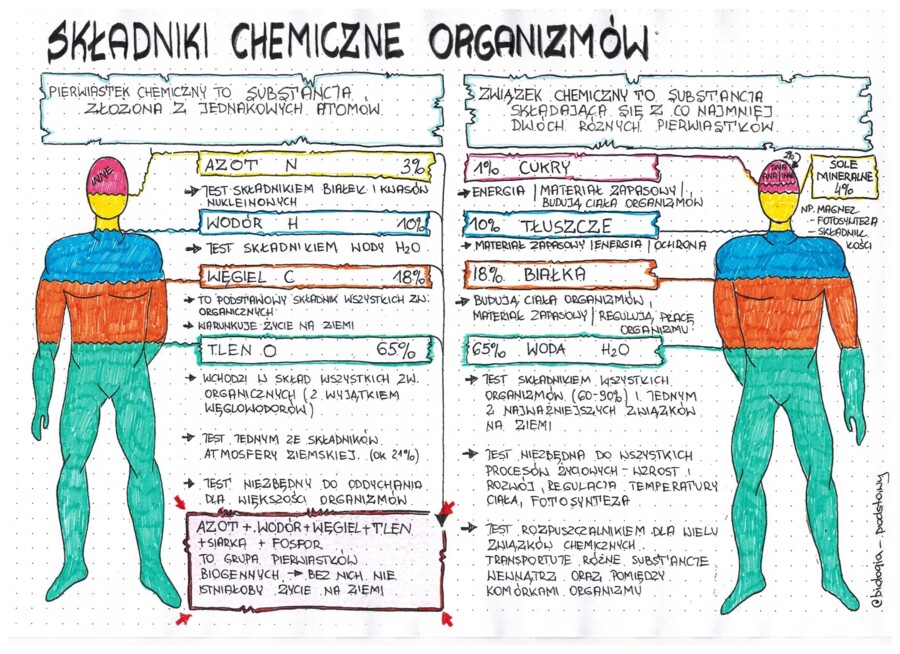 SKŁADNIKI CHEMICZNE ORGANIZMÓW
PIERWIASTEK CHEMICZNY TO SUBSTANCJA
ZŁOŻONA Z JEDNAKOWYCH ATOMÓW.
INNE
AZOT N 3%
→ JEST SKŁADNIKIEM BIAŁEK I KWASÓW
NUKLEINOWYCH
WODÓR H 10%
→ JEST SKŁADNIKIEM WODY H2O
WĘGIEL C 18%
→ TO PODSTAWOWY SKŁADNIK WSZYSTKICH ZW.
ORGANICZNYCH
→ WARUNKUJE ŻYCIE NA ZIEMI
TLEN O 65%
→ WCHODZI W SKŁAD WSZYSTKICH ZW.
ORGANICZNYCH (Z WYJĄTKIEM
WĘGLOWODORÓW)
→ JEST JEDNYM ZE SKŁADNIKÓW
ATMOSFERY ZIEMSKIEJ. (OK 21%)
→ JEST NIEZBĘDNY DO ODDYCHANIA
DLA WIĘKSZOŚCI ORGANIZMÓW
AZOT + WODÓR + WĘGIEL + TLEN
+ SIARKA + FOSFOR
TO GRUPA PIERWIASTKÓW
BIOGENNYCH → BEZ NICH NIE
ISTNIAŁOBY ŻYCIE NA ZIEMI
ZWIĄZEK CHEMICZNY TO SUBSTANCJA
SKŁADAJĄCA SIĘ Z CO NAJMNIEJ
DWÓCH RÓŻNYCH PIERWIASTKÓW.
1% CUKRY
→ ENERGIA | MATERIAŁ ZAPASOWY |
BUDUJĄ CIAŁA ORGANIZMÓW
2%
DNA
RNA INNE
SOLE
MINERALNE
4%
NP. MAGNEZ
- FOTOSYNTEZA
- SKŁADNIK
KOŚCI
10% TŁUSZCZE
→ MATERIAŁ ZAPASOWY | ENERGIA | OCHRONA
18% BIAŁKA
→ BUDUJĄ CIAŁA ORGANIZMÓW,
MATERIAŁ ZAPASOWY | REGULUJĄ PRACĘ
ORGANIZMU
65% WODA H2O
→ JEST SKŁADNIKIEM WSZYSTKICH
ORGANIZMÓW (60-90%) I JEDNYM
Z NAJWAŻNIEJSZYCH ZWIĄZKÓW
NA ZIEMI
→ JEST NIEZBĘDNA DO WSZYSTKICH
PROCESÓW ŻYCIOWYCH - WZROST I
ROZWÓJ, REGULACJA TEMPERATURY
CIAŁA, FOTOSYNTEZA
→ JEST ROZPUSZCZALNIKIEM DLA WIELU
ZWIĄZKÓW CHEMICZNYCH.
TRANSPORTUJE RÓŻNE SUBSTANCJE
WEWNĄTRZ ORAZ POMIĘDZY
KOMÓRKAMI ORGANIZMU
@biologia_podstawy